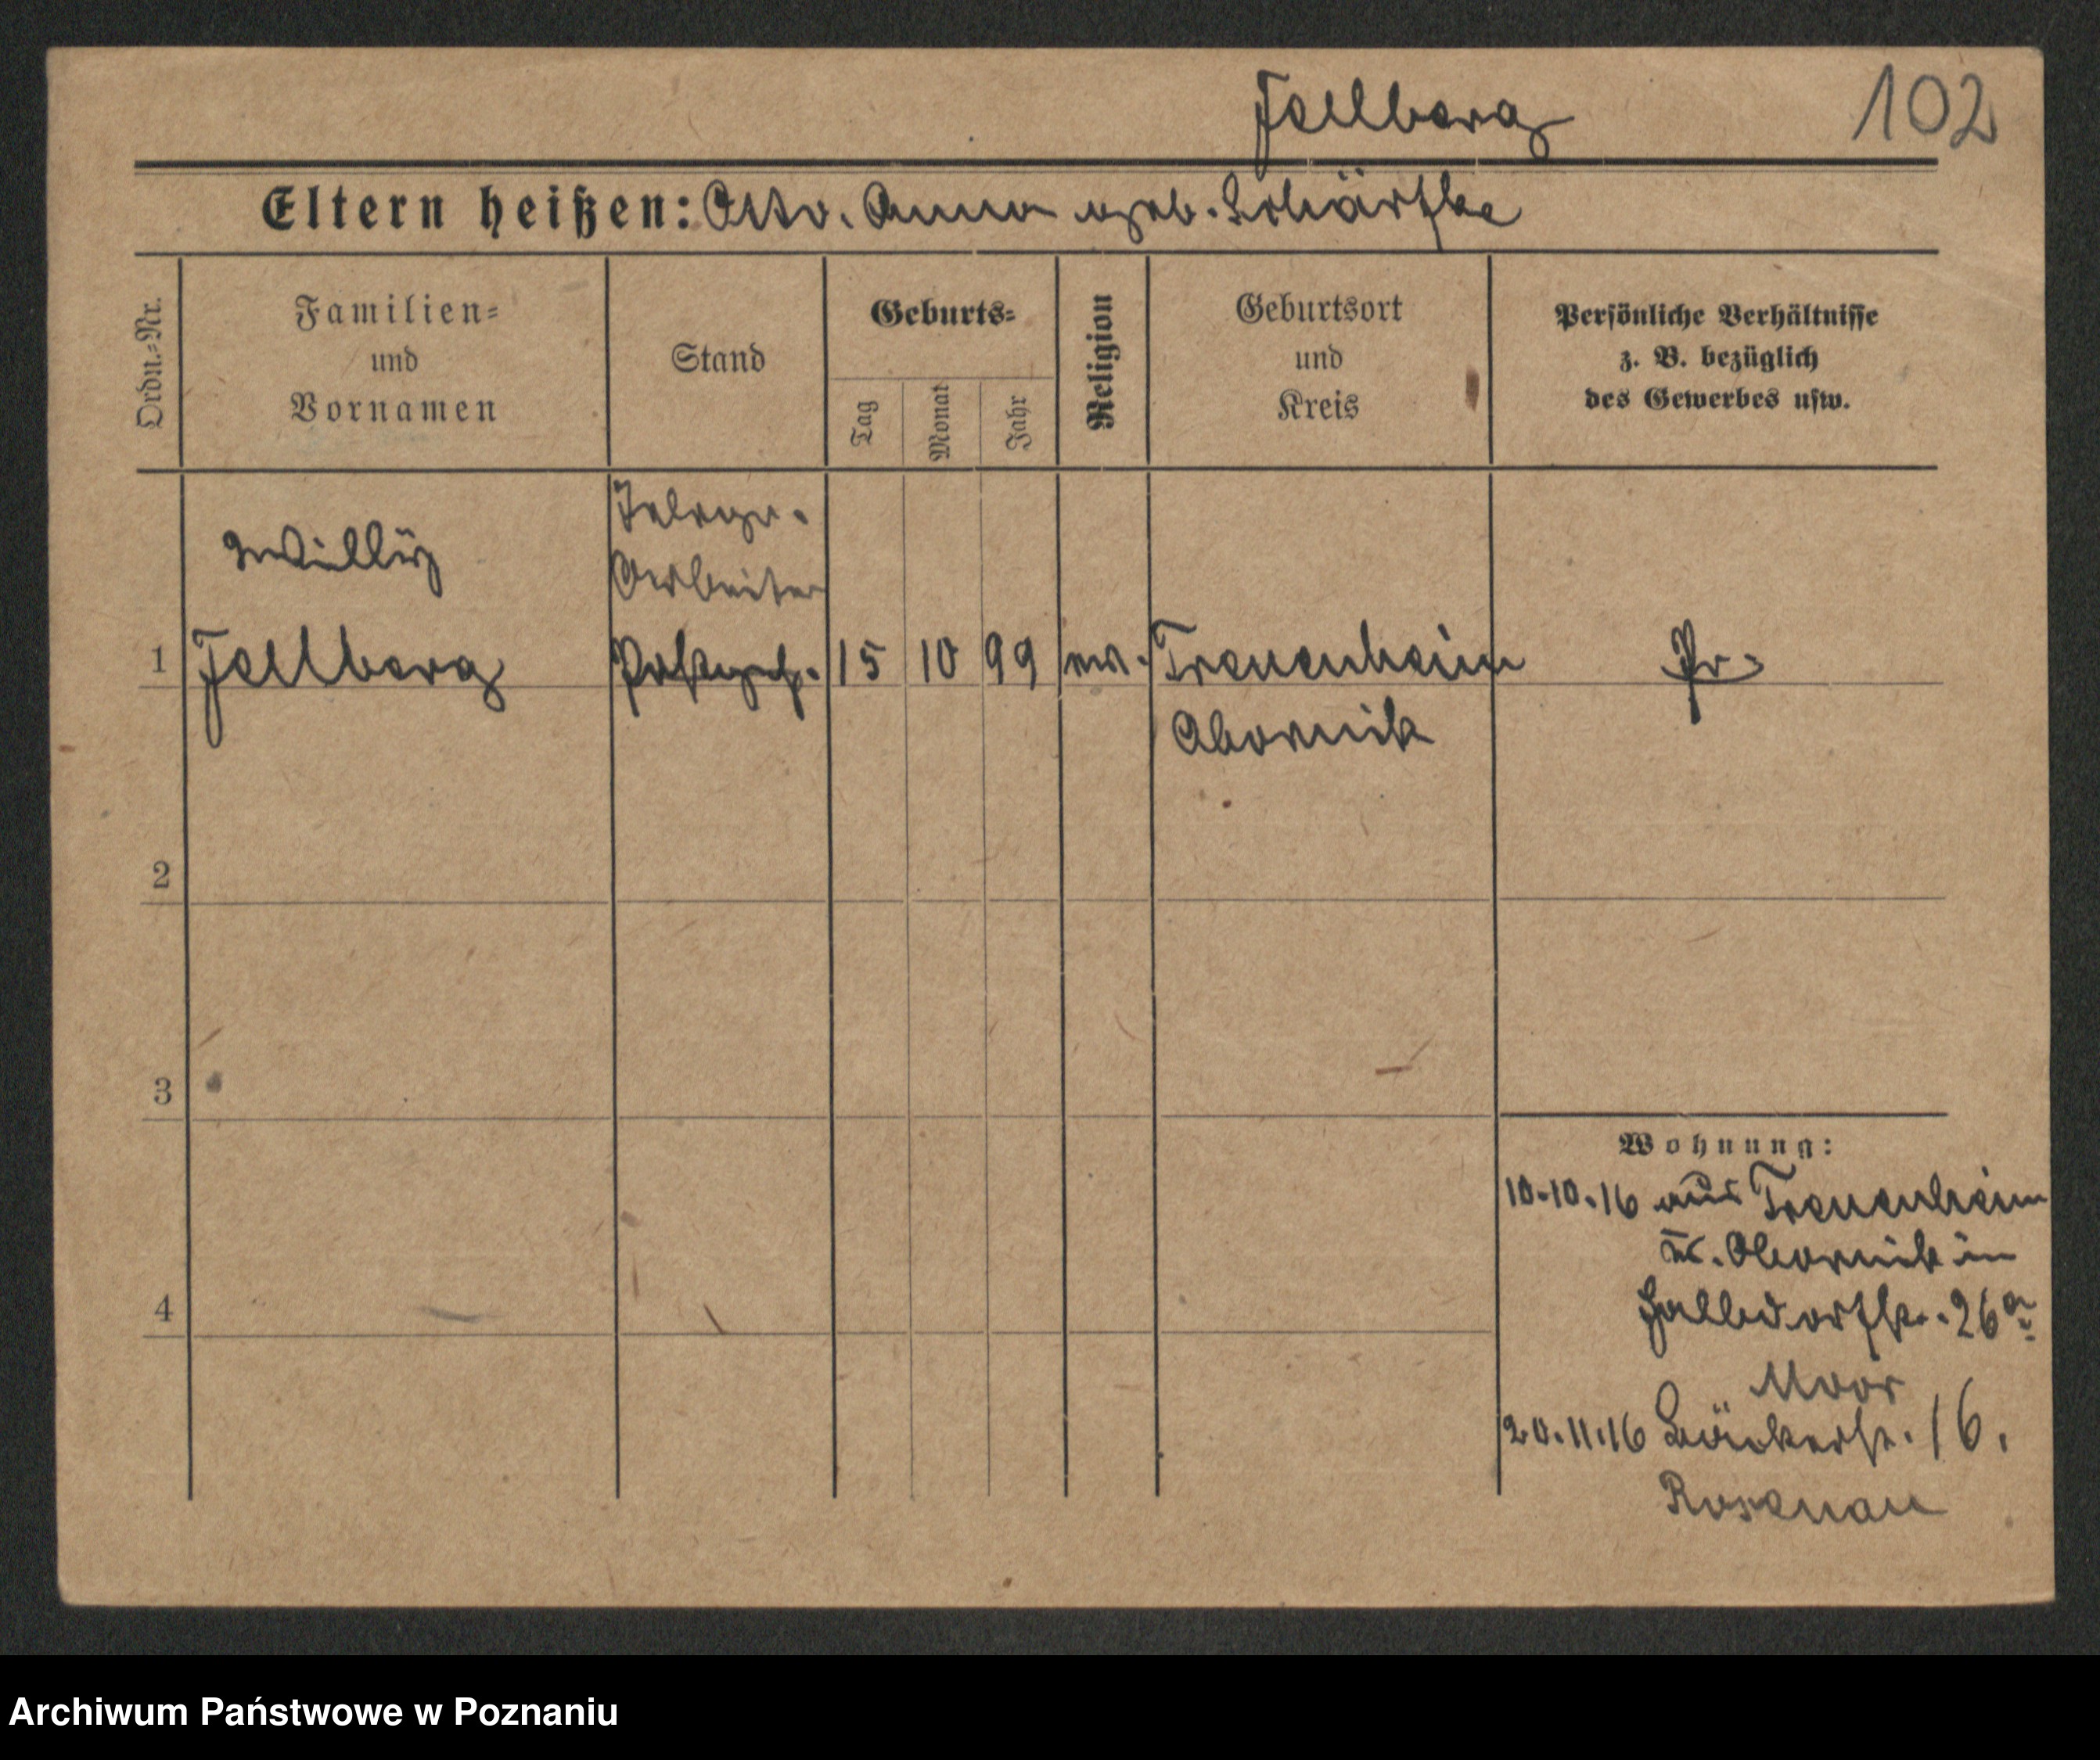 Fellberg
102
Eltern heißen: Otto. Anna geb. Schärfke
Ordn.-Nr.
Familien-
und
Vornamen
Stand
Geburts-
Tag
Monat
Jahr
Religion
Geburtsort
und
Kreis
Persönliche Verhältnisse
z. B. bezüglich
des Gewerbes usw.
Willy
Telegr.
Arbeiter
1 Fellberg 15 10 99 ev. Treuenheim Pr.
Obornik
2
3
4
Wohnung:
10.10.16 aus Treuenheim
Kr. Obornik in
26a
Moor
20.11.16 Bäckerstr. 16.
Rosenau
Archiwum Państwowe w Poznaniu